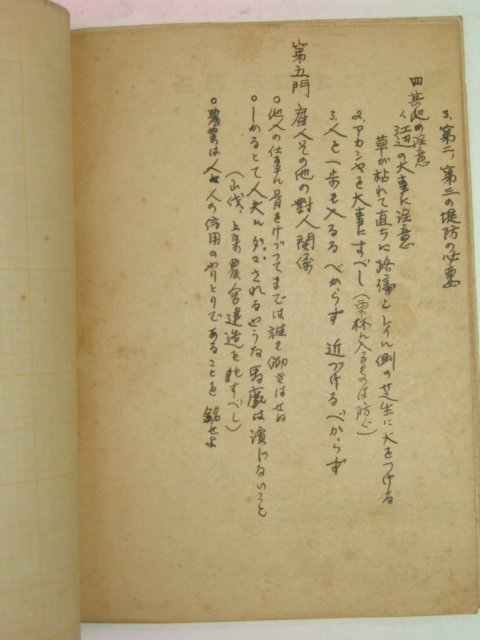 3、第二、第三の堤防の必要
四 其他の注意
1、江辺の火事に注意
草が枯れて直ちに路傍とレイル側の芝生に火をつける
2、アカシヤを大事にすべし（栗林に入るものは防ぐ）
3、人を一歩も入るるべからず 近づけるべからず
第五門 雇人その他の対人関係
○他人の仕事に骨をけづつてまでは誰も働きはせぬ
○しかるとて人夫に されるやうな馬鹿は演じないこと
（ 、 農舎建造を すべし）
○農業は人と人の信用のやりとりであることを銘せよ